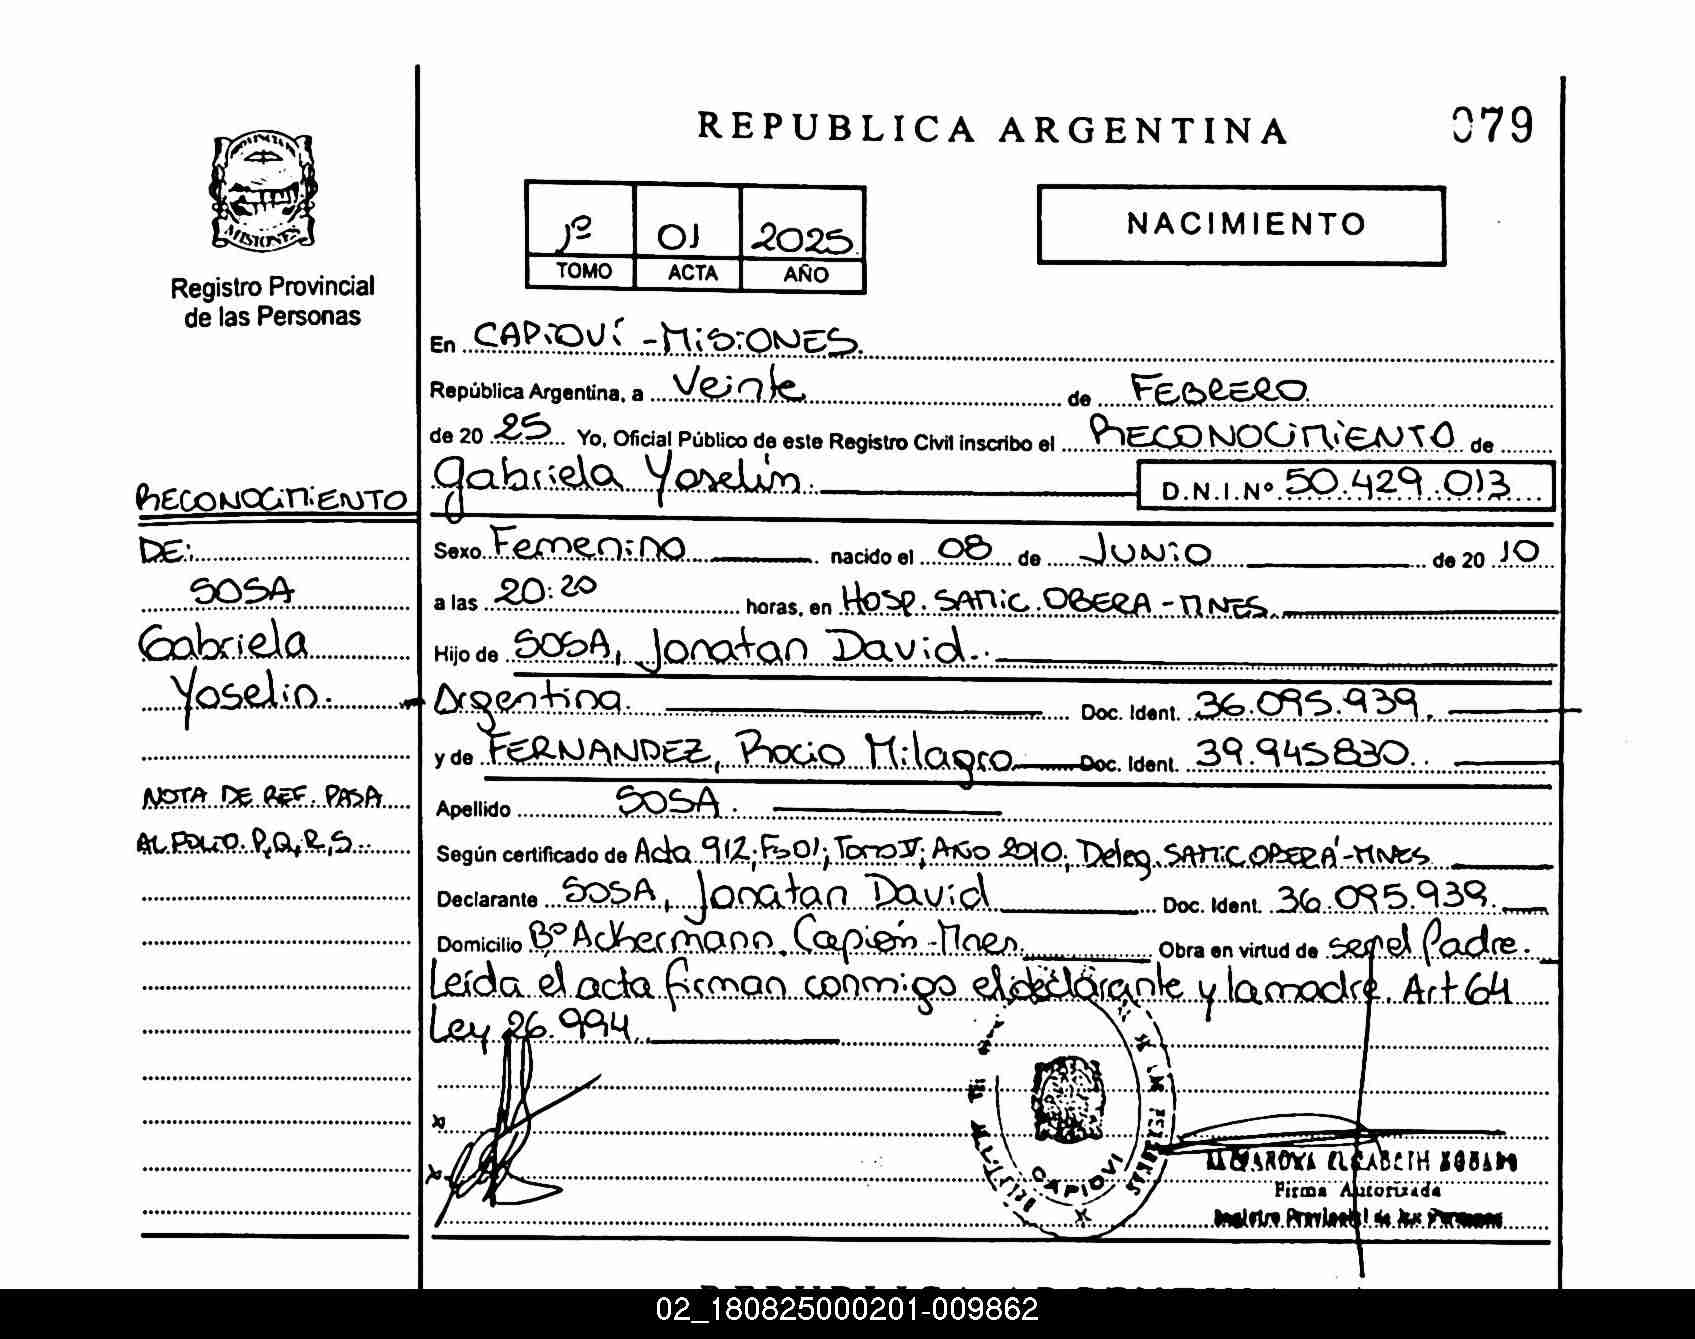 REPUBLICA ARGENTINA
079
MISIONES
Registro Provincial
de las Personas
1º 01 2025
TOMO ACTA AÑO
NACIMIENTO
En CAPIOVÍ - MISIONES.
República Argentina, a Veinte de FEBRERO.
de 20 25 Yo, Oficial Público de este Registro Civil inscribo el RECONOCIMIENTO de
Gabriela Yoselin. D.N.I.Nº 50.429.013
RECONOCIMIENTO
DE:
SOSA
Gabriela
Yoselin.
NOTA DE REF. PASA
AL FOLIO. P,Q,R,S.
Sexo Femenino nacido el 08 de JUNIO de 20 10
a las 20:20 horas, en HOSP. SAMIC. OBERA - MNES.
Hijo de SOSA, Jonatan David.
Argentina. Doc. Ident. 36.095.939.
y de FERNANDEZ, Rocio Milagro Doc. Ident. 39.945830.
Apellido SOSA.
Según certificado de Acta 912, Fº 01, Tomo V, Año 2010, Deleg. SAMIC OBERÁ - MNES
Declarante SOSA, Jonatan David Doc. Ident. 36.095.939.
Domicilio Bº Ackermann, Capioví - Mnes. Obra en virtud de ser el Padre.
Leída el acta firman conmigo el declarante y la madre. Art 64
Ley 26.994.
CAPIOVI
Firma Autorizada
Registro Provincial de las Personas
02_180825000201-009862